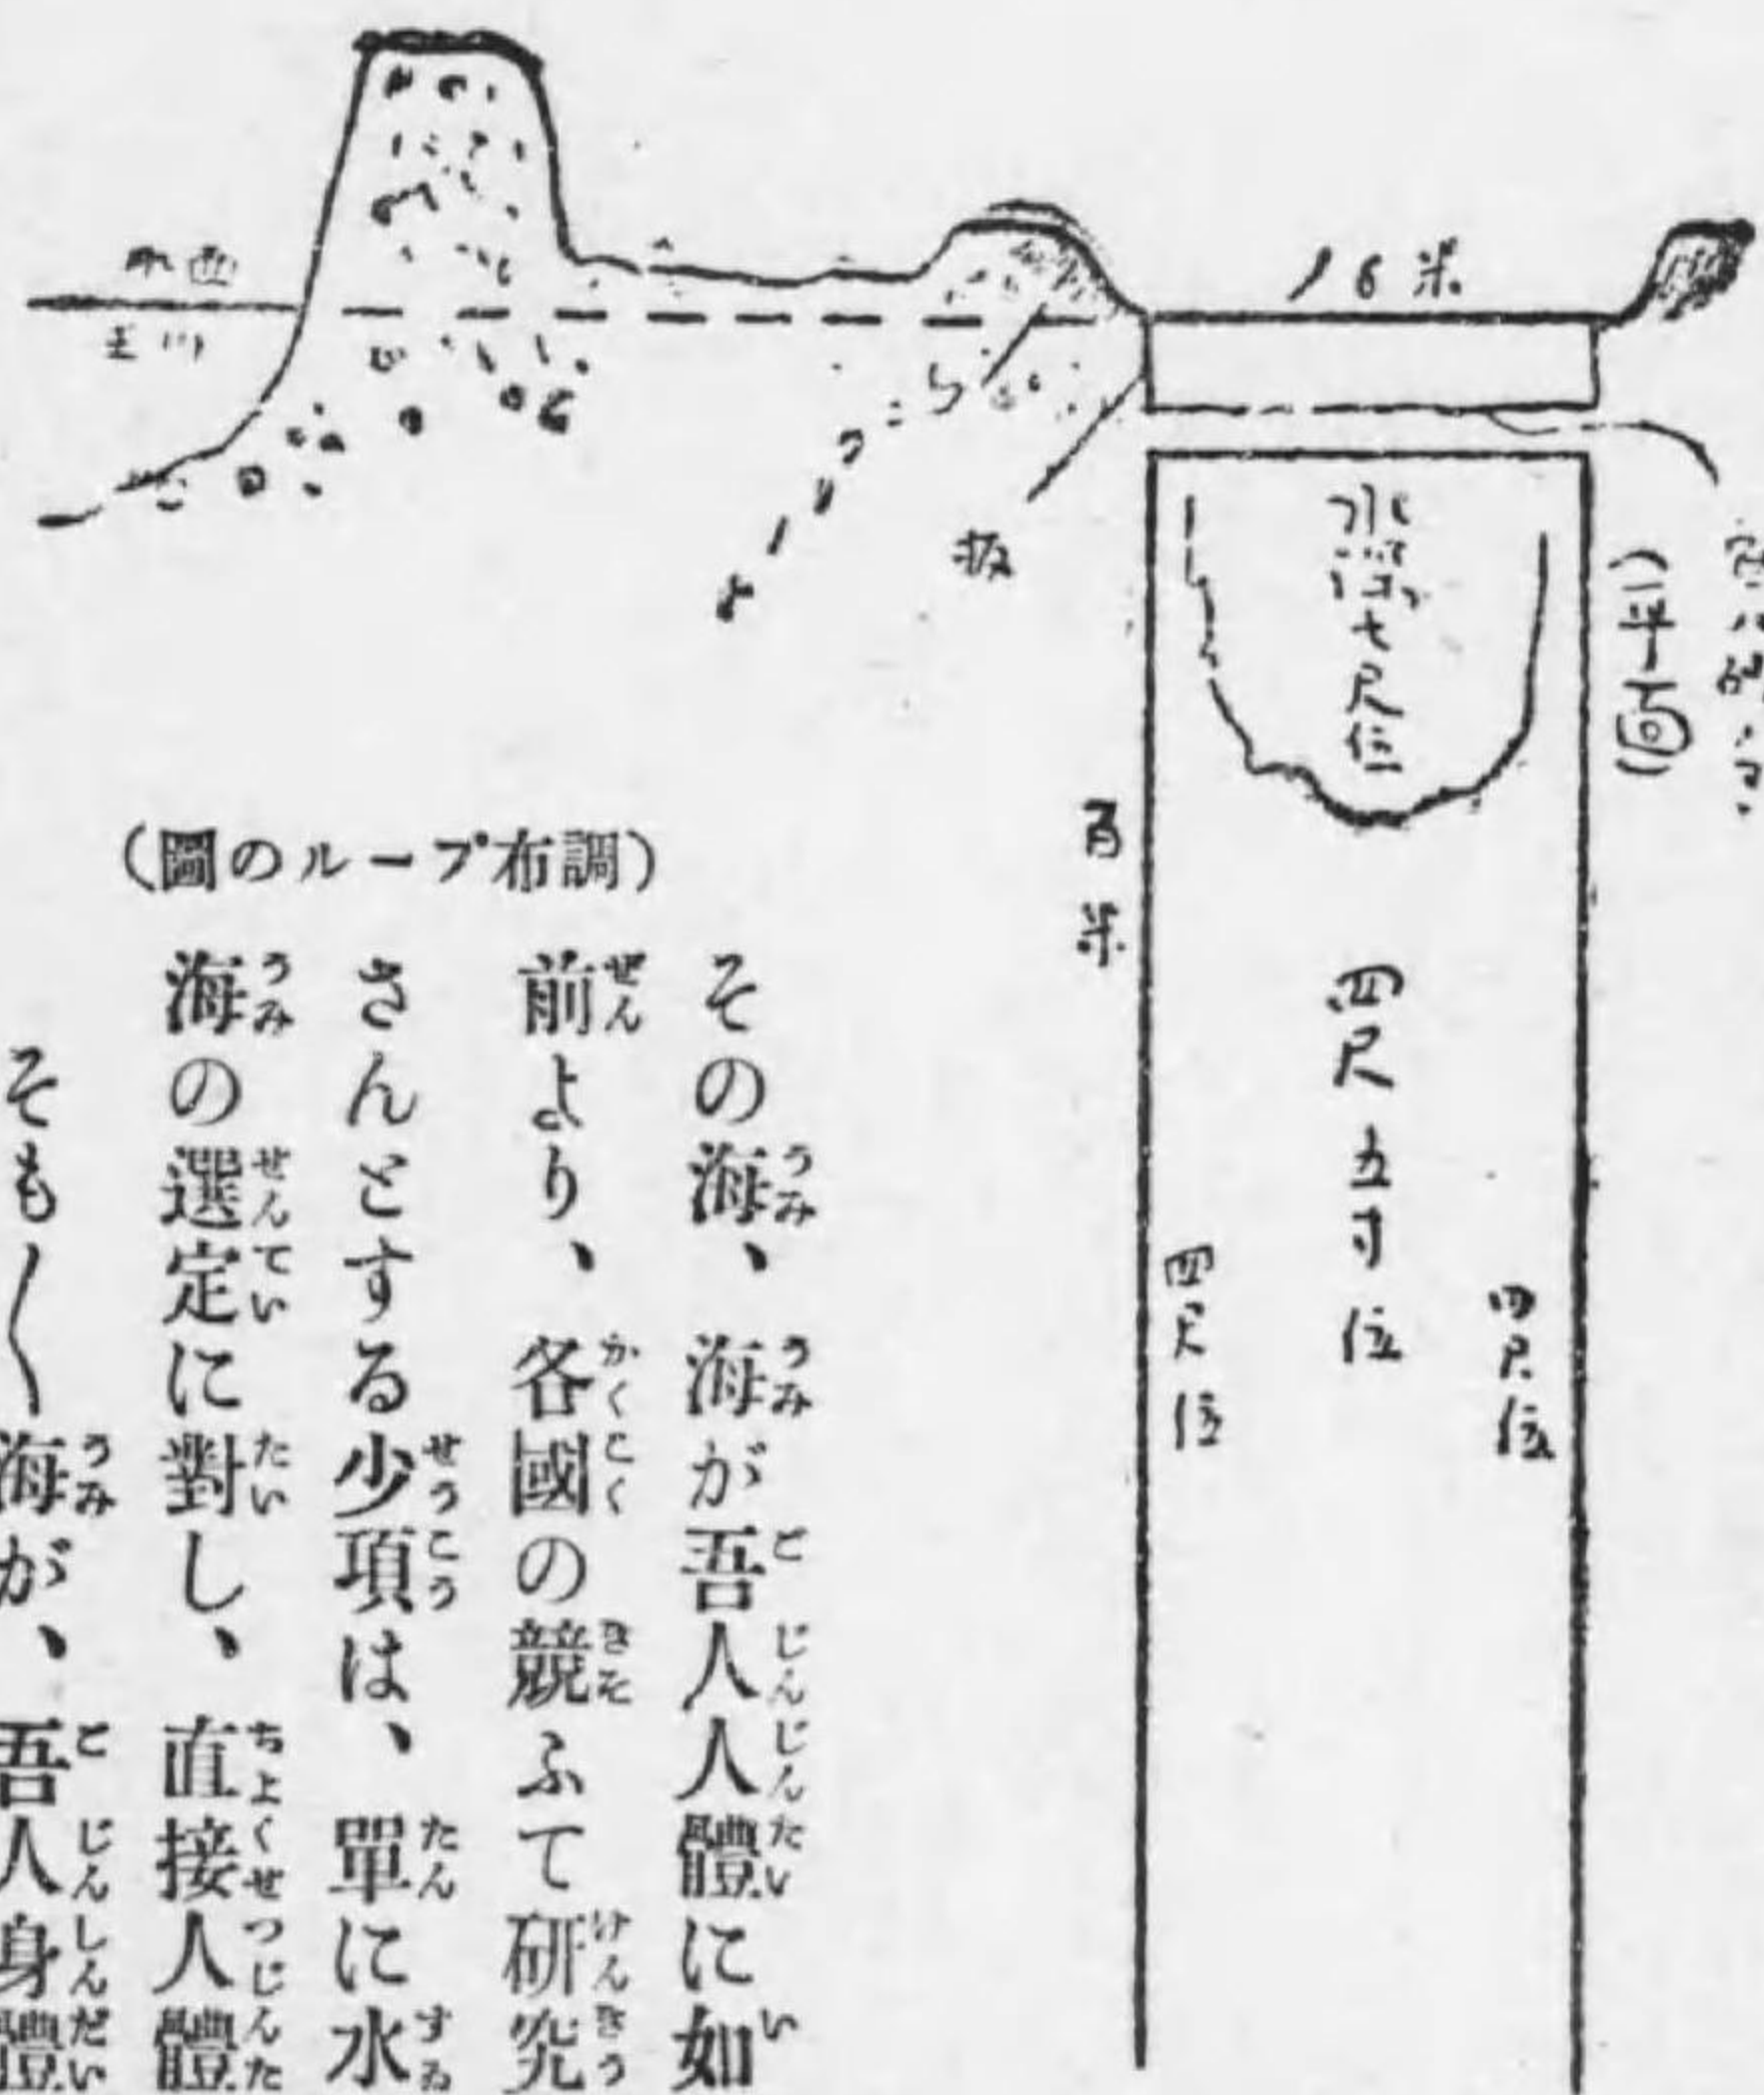 水面
玉川
16米
板
水深七尺位
(平面)
百米
四尺五寸位
四尺位
四尺位
(圖のループ布調)
その海、海が吾人人體に如
前より、各國の競ふて研究
さんとする少項は、單に水
海の選定に對し、直接人體
そも〱海が、吾人身體